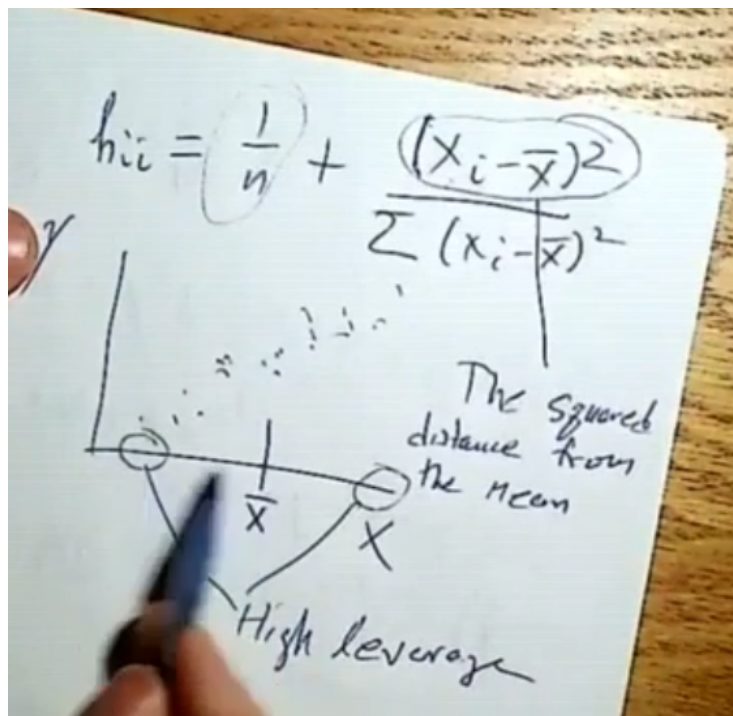 hii = 1/n + (xi - x̄)2 / Σ (xi - x̄)²
y
The squared
distance from
the mean
x̄
x
High leverage